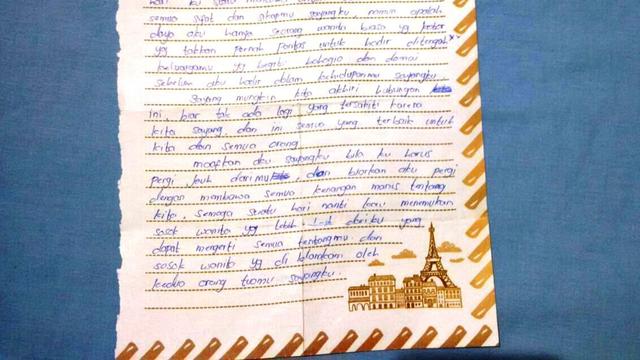 semua sifat dan sikapmu sayangku, namun apalah
daya aku hanya seorang wanita biasa yg kotor
yg takkan pernah pantas untuk hadir ditengah"
keluargamu yg begitu bahagia dan damai
sebelum aku hadir dalam kehidupanmu sayangku
Sayang mungkin kita akhiri hubungan
ini, biar tak ada lagi yang tersakiti karena
kita sayang, dan ini semua yang terbaik untuk
kita dan semua orang
maafkan aku sayangku bila ku harus
pergi jauh darimu, dan biarkan aku pergi
dengan membawa semua kenangan manis tentang
kita, semoga suatu hari nanti kau menemukan
sosok wanita yg lebih dariku yang
dapat mengerti semua tentangmu dan
sosok wanita yg di idamkan oleh
kedua orang tuamu sayangku.